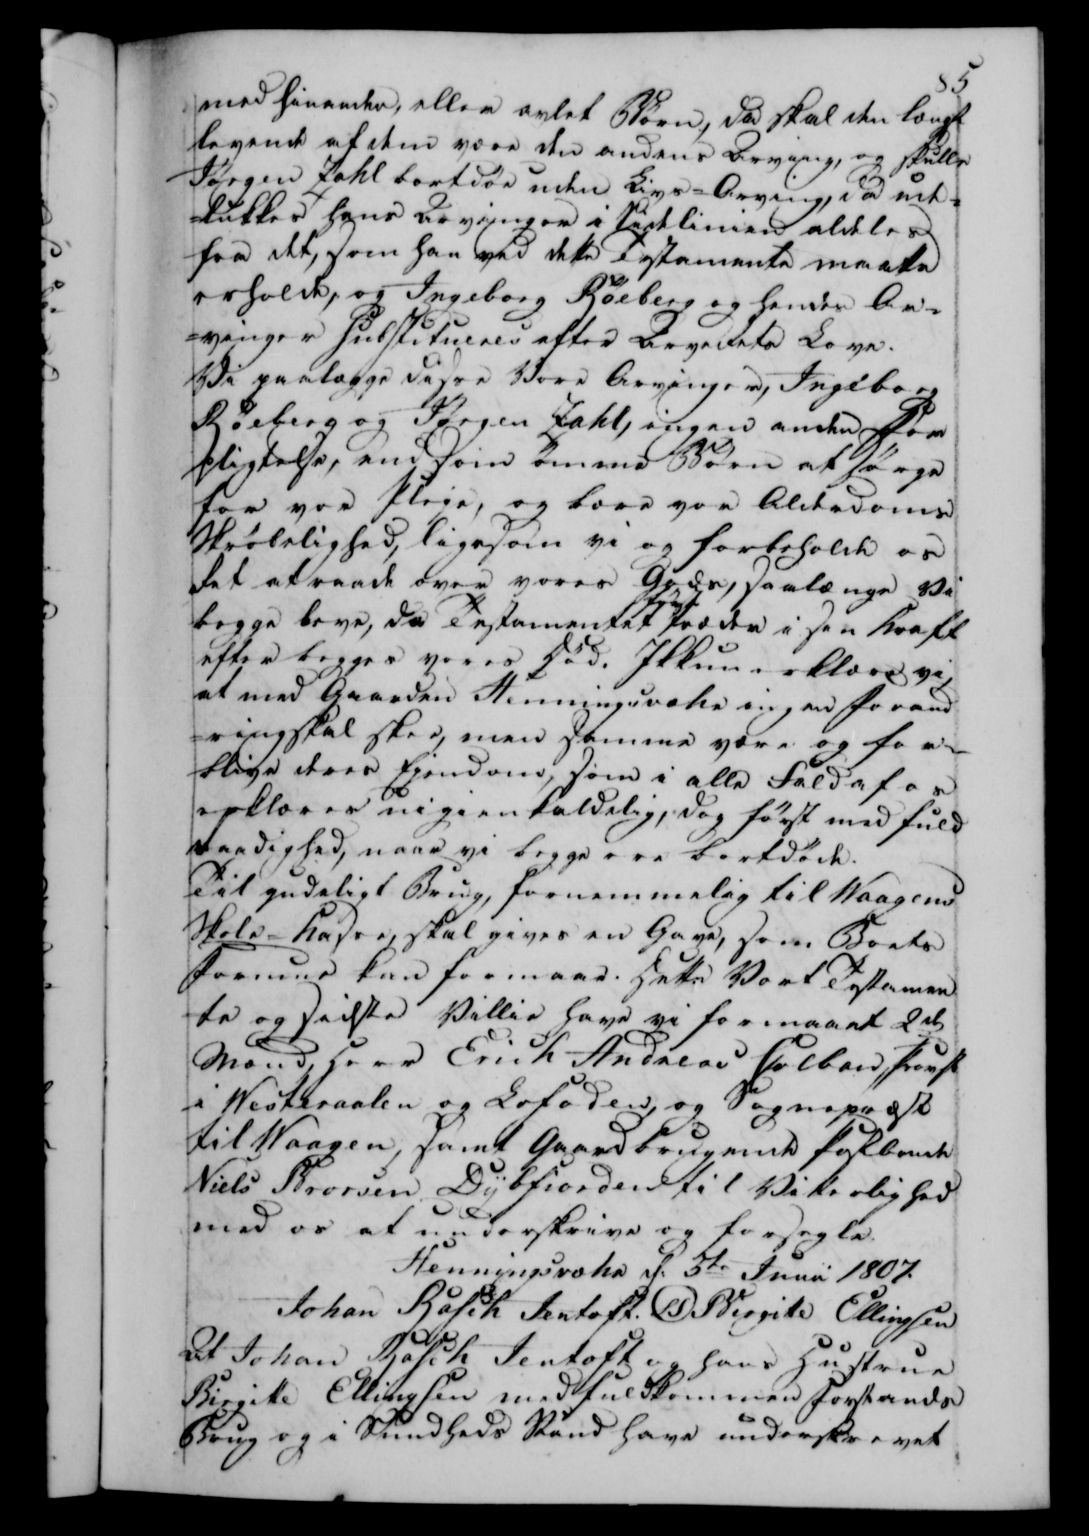 85
med hinanden, eller avlet Børn, da skal den længst
levende af dem være den andens Arving, og skulle
Jørgen Zahl bortdöe uden Livs-Arving, da ude-
-lukkes hans Arvinger i Sidelinien aldeles
fra det, som han ved dette Testamente maatte
erholde, og Ingeborg Röeberg og hendes Ar-
-vinger substitueres efter Arvetets Love.
Vi paalægge disse Vore Arvinger, Ingeborg
Röeberg og Jørgen Zahl, ingen anden For
pligtelse, end som ömme Börn at sörge
for vor Pleje, og bære vor Alderdoms
Skröbelighed, ligesom vi og forbeholde os
det at raade over vores Gods, saalænge Vi
begge leve, da Testamentet først træder i sin Kraft
efter begges vores Död. Ikkun erklære vi,
at med Gaarden Henningsvæhr ingen Forand
-ring skal skee, men samme være og for-
blive deres Ejendom, som i alle Fald af os
erklæres uigienkaldelig, dog först med fuld
raadighed, naar vi begge ere bortdöde.
Til gudeligt Brug, fornemmelig til Waagens
Skole-Kasse, skal gives en Gave, som Boets
Formue kan formaae. Dette Vort Testamen
te og sidste Villie have vi formaaet 2de
Mænd, Herr Erich Andreas Colban, Provst
i Westeraalen og Lofoden, og Sognepræst
til Waagen, samt Gaardbrugende Postbonde
Niels Brorsen Dÿbfiorden til Vitterlighed
med os at underskrive og forsegle.
Henningsvæhr d. 5te Junii 1807.
Johan Rasch Jentoft. (LS) Birgitte Ellingsen
At Johan Rasch Jentoft og hans Hustrue
Birgitte Ellingsen med fuldkommen Forstands
Brug og i Sundheds Stand have underskrevet